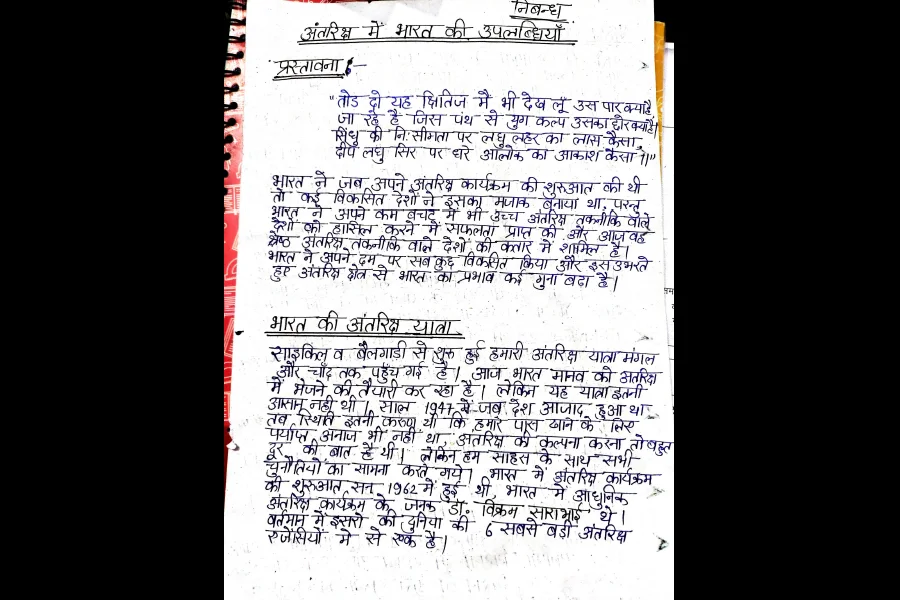 निबन्ध
अंतरिक्ष में भारत की उपलब्धियाँ
प्रस्तावना :-
"तोड दो यह क्षितिज मैं भी देख लूं उस पार क्या है
जा रहे है जिस पंथ से युग कल्प उसका छोर क्या है।
सिंधु की नि:सीमता पर लघु लहर का लास कैसा
दीप लघु सिर पर धरे आलोक का आकाश कैसा ?।"
भारत ने जब अपने अंतरिक्ष कार्यक्रम की शुरुआत की थी
तो कई विकसित देशों ने इसका मजाक बनाया था, परन्तु
भारत ने अपने कम बचट में भी उच्च अंतरिक्ष तकनीकि वाले
देशों को हासिल करने में सफलता प्राप्त की और आज वह
श्रेष्ठ अंतरिक्ष तकनीकि वाले देशों की कतार में शामिल है।
भारत ने अपने दम पर सब कुछ विकसित किया और इस उभरते
हुए अंतरिक्ष क्षेत्र से भारत का प्रभाव कई गुना बढा है।
भारत की अंतरिक्ष यात्रा
साइकिल व बैलगाडी से शुरु हुई हमारी अंतरिक्ष यात्रा मंगल
और चाँद तक पहुँच गई है। आज भारत मानव को अंतरिक्ष
में भेजने की तैयारी कर रहा है। लेकिन यह यात्रा इतनी
आसान नही थी। साल 1947 में जब देश आजाद हुआ था
तब स्थिति इतनी करुण थी कि हमारे पास खाने के लिए
पर्याप्त अनाज भी नहीं था, अंतरिक्ष की कल्पना करना तो बहुत
दूर की बात है थी। लेकिन हम साहस के साथ सभी
चुनौतियों का सामना करते गये। भारत में अंतरिक्ष कार्यक्रम
की शुरुआत सन् 1962 में हुई थी भारत में आधुनिक
अंतरिक्ष कार्यक्रम के जनक डॉ. विक्रम साराभाई थे।
वर्तमान में इसरो की दुनिया की 6 सबसे बडी अंतरिक्ष
एजेंसियों मे से एक है।